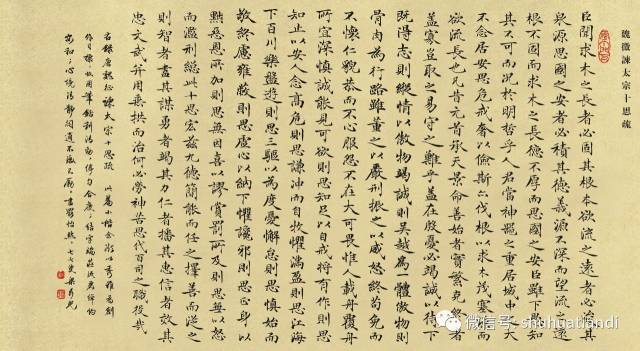 魏徵諫太宗十思疏
臣聞求木之長者必固其根本欲流之遠者必浚其
泉源思國之安者必積其德義源不深而望流之遠
根不固而求木之長德不厚而思國之安臣雖下愚知
其不可而況於明哲乎人君當神器之重居域中之大
不念居安思危戒奢以儉斯亦伐根以求木茂塞源而
欲流長也凡昔元首承天景命善始者實繁克終者
蓋寡豈取之易守之難乎蓋在殷憂必竭誠以待下
既得志則縱情以傲物竭誠則吳越為一體傲物則
骨肉為行路雖董之以嚴刑振之以威怒終苟免而
不懷仁貌恭而不心服怨不在大可畏惟人載舟覆舟
所宜深慎誠能見可欲則思知足以自戒將有作則思
知止以安人念高危則思謙沖而自牧懼滿盈則思江海
下百川樂盤遊則思三驅以為度憂懈怠則思慎始而
敬終慮壅蔽則思虛心以納下懼讒邪則思正身以
黜惡恩所加則思無因喜以謬賞罰所及則思無以怒
而濫刑總此十思宏茲九德簡能而任之擇善而從之
則智者盡其謀勇者竭其力仁者播其惠信者效其
忠文武并用垂拱而治何必勞神苦思代百司之職役哉
右錄唐魏征諫太宗十思疏
微信号: shuhuatiandi